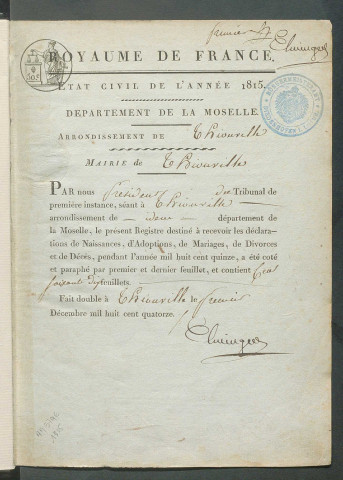 premier
ROYAUME DE FRANCE.
ETAT CIVIL DE L'ANNÉE 1815.
DEPARTEMENT DE LA MOSELLE.
ARRONDISSEMENT DE Thionville
MAIRIE de Thionville
PAR nous Président du Tribunal de
première instance, séant à Thionville
arrondissement de département
de la Moselle, le présent Registre destiné à recevoir les déclara-
tions de Naissances, d'Adoptions, de Mariages, de Divorces
et de Décès, pendant l'année mil huit cent quinze, a été coté
et paraphé par premier et dernier feuillet, et contient
feuillets.
Fait double à Thionville le premier
Décembre mil huit cent quatorze.